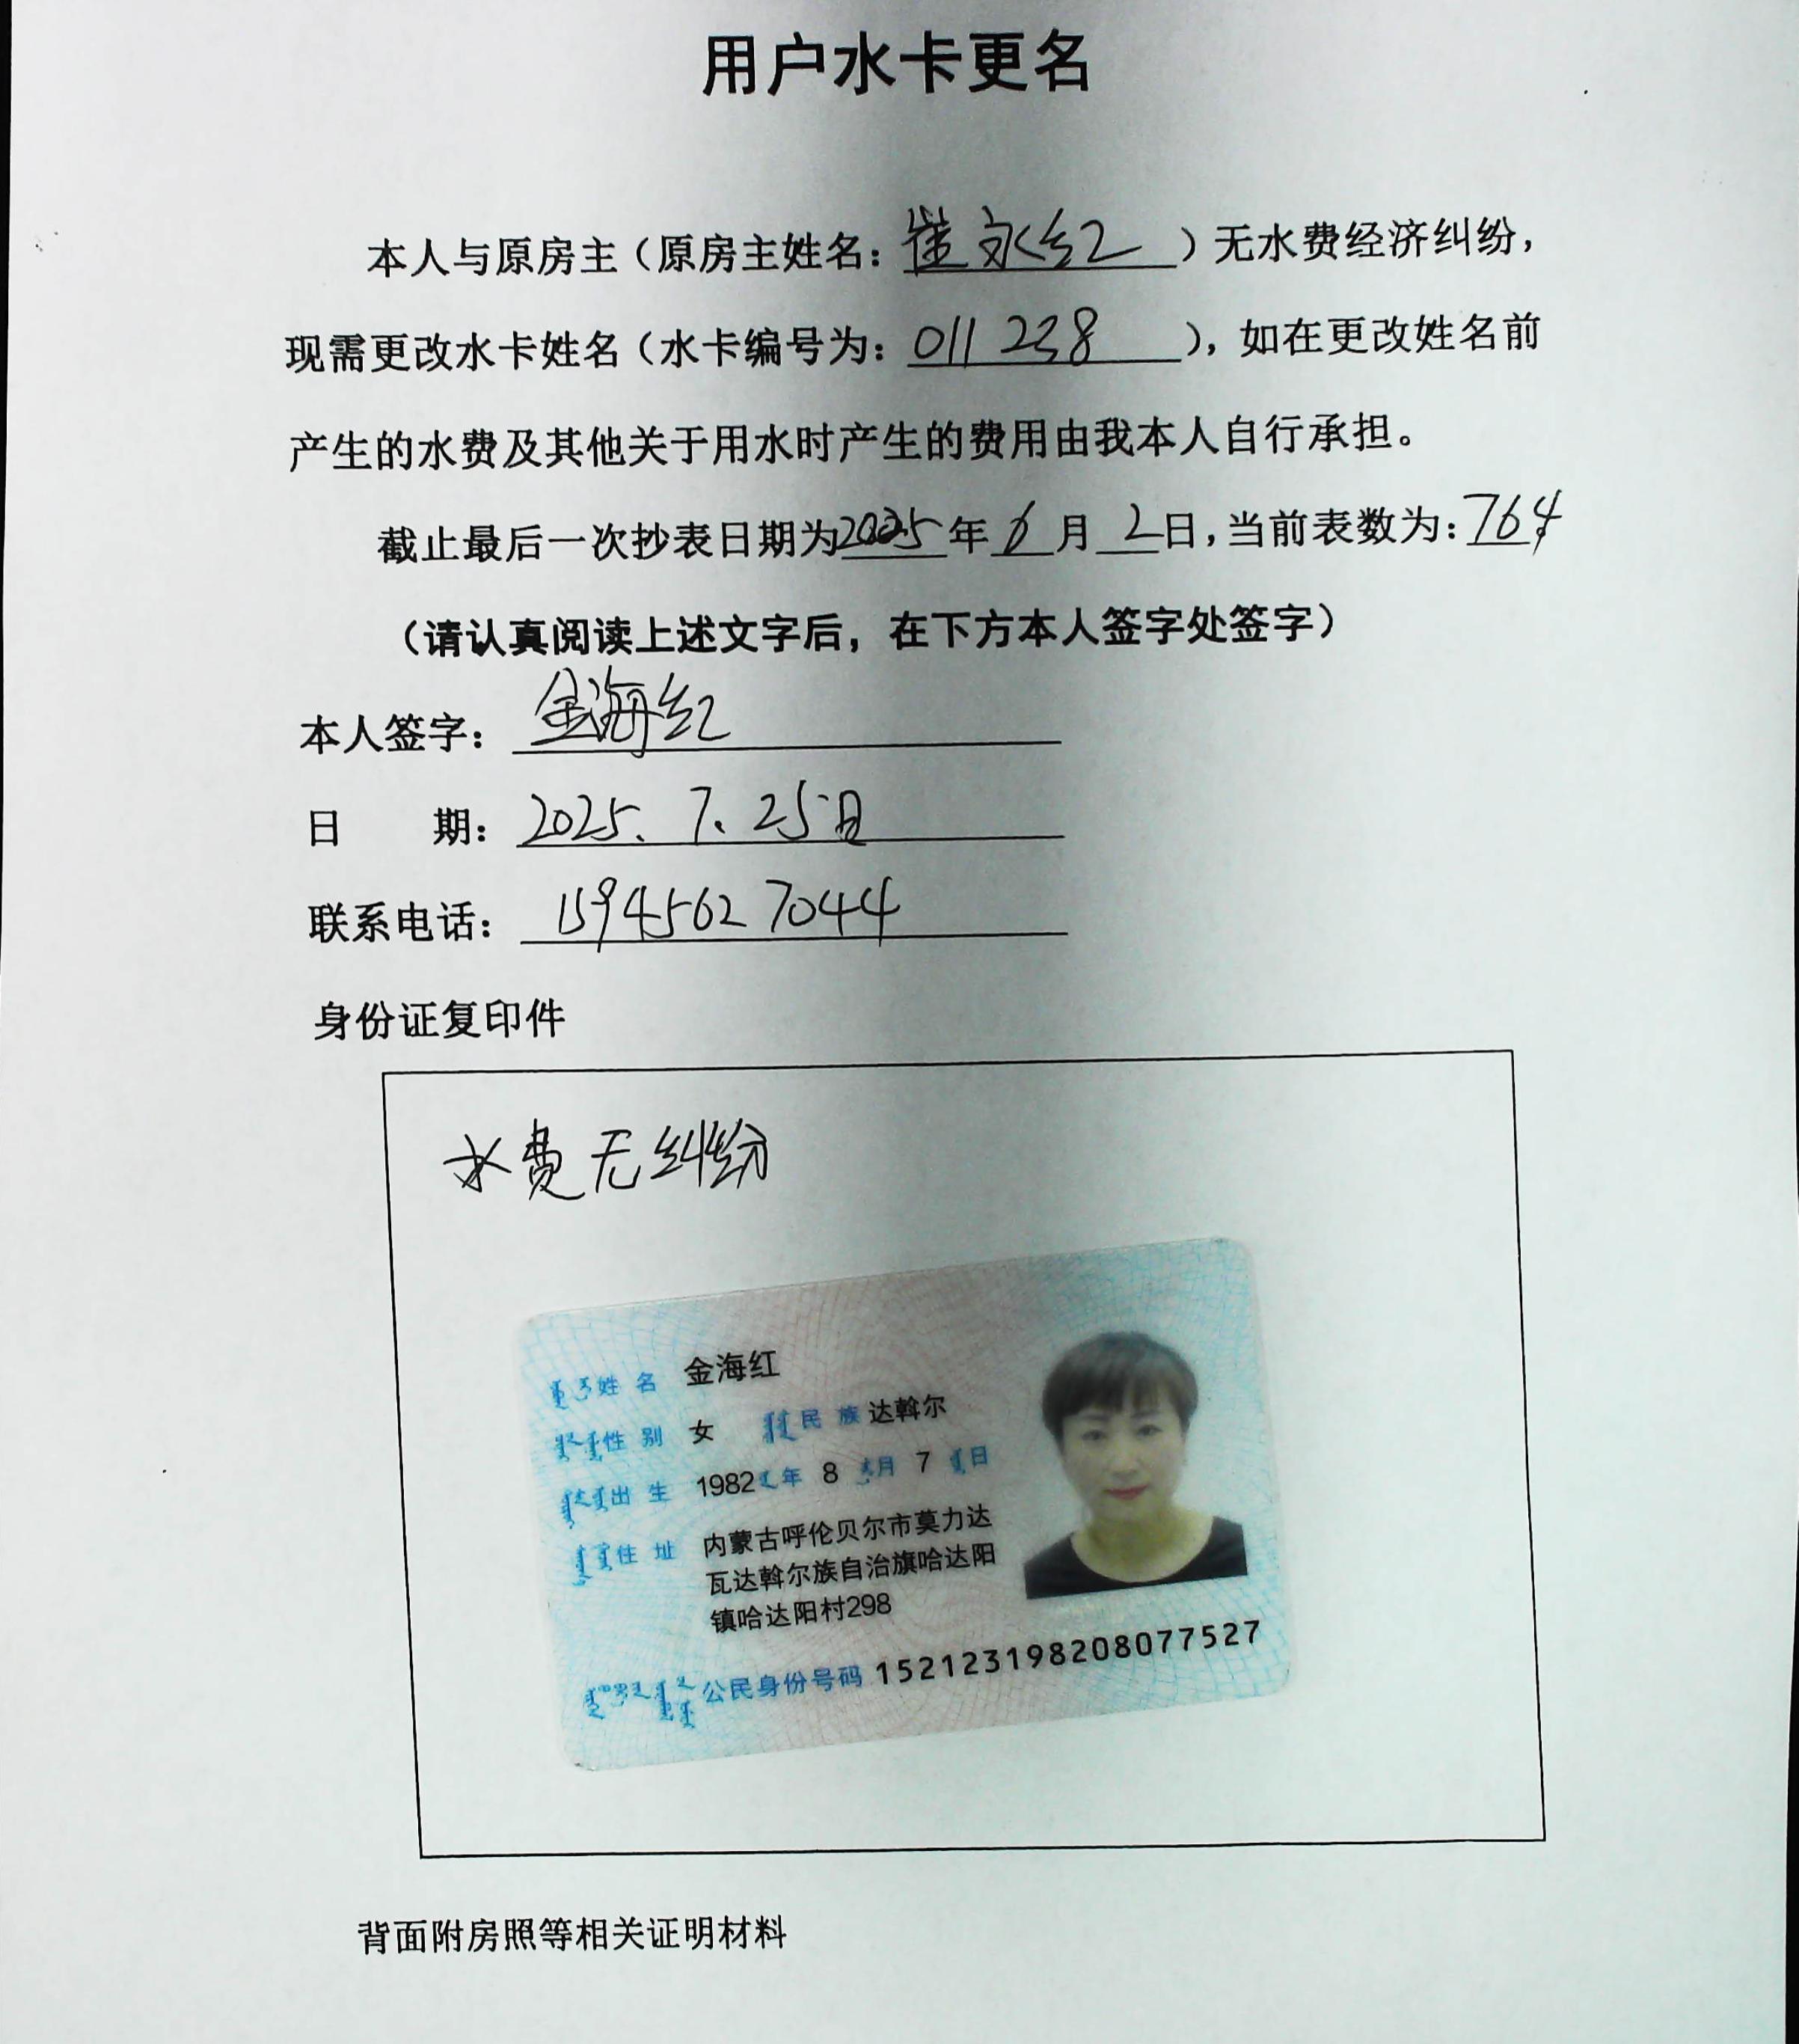 用户水卡更名
本人与原房主（原房主姓名：崔永红）无水费经济纠纷，
现需更改水卡姓名（水卡编号为：011238），如在更改姓名前
产生的水费及其他关于用水时产生的费用由我本人自行承担。
截止最后一次抄表日期为2025年6月2日，当前表数为：764
（请认真阅读上述文字后，在下方本人签字处签字）
本人签字：金海红
日 期：2025.7.25日
联系电话：15945627044
身份证复印件
水费无纠纷
姓名 金海红
性别 女 民族 达斡尔
出生 1982年8月7日
住址 内蒙古呼伦贝尔市莫力达
瓦达斡尔族自治旗哈达阳
镇哈达阳村298
公民身份号码 152123198208077527
背面附房照等相关证明材料